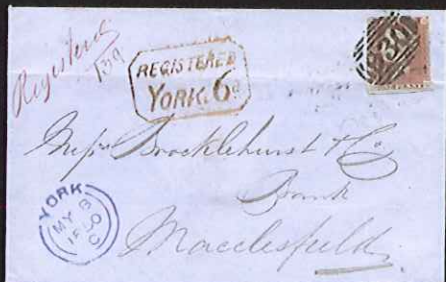 Registered
139
REGISTERED
YORK. 6d
Messrs Brocklehurst & Co
Bank
Macclesfield
YORK
MY 8
1850
C